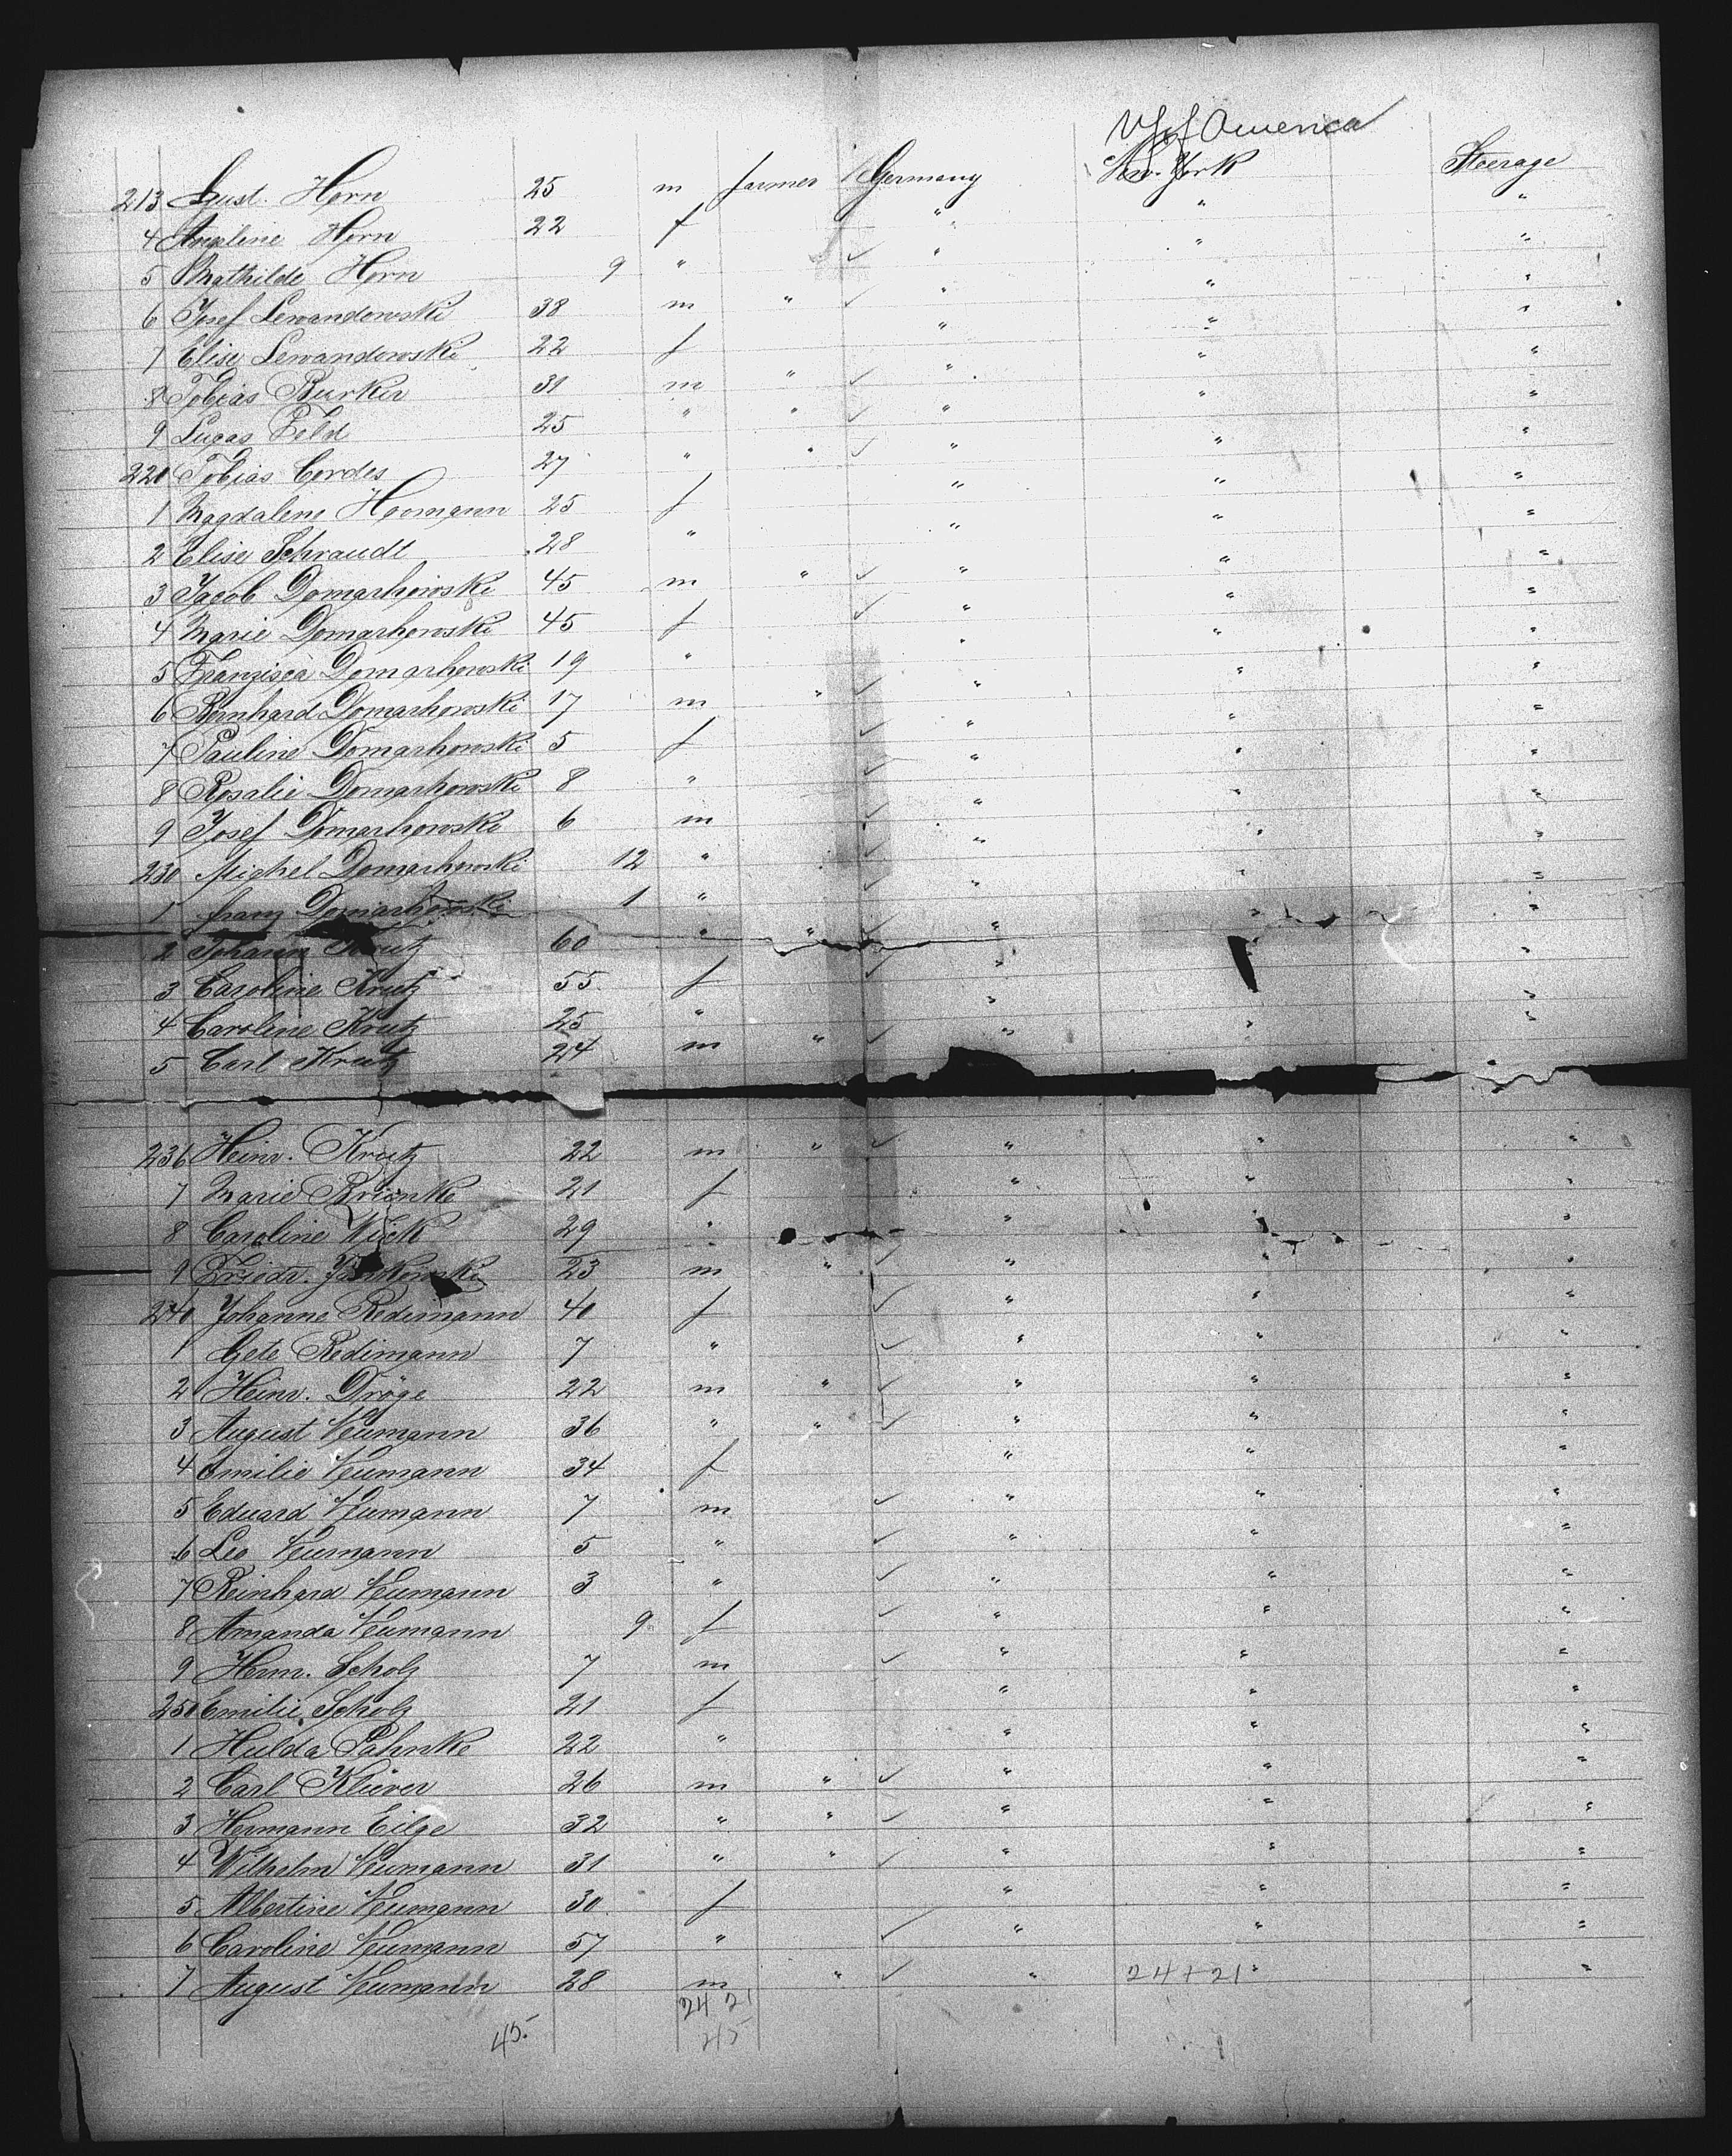 U S of America
213 Gust. Horn 25 m farmer Germany New-York Steerage
4 Horn 22 f " " "
5 Mathilde Horn 9 " ✓ " " "
6 Josef Lewandowski 38 m " ✓ " " "
7 Elise Lewandowski 22 f " " "
8 Tobias Burker 31 m " ✓ " " "
9 Lucas Feld 25 " " ✓ " " "
220 Tobias Cordes 27 " " ✓ " " "
1 Magdalene Hormann 25 f " " "
2 Elise Schraudt 28 " " " "
3 Jacob Domarhowski 45 m " ✓ " " "
4 Marie Domarhowski 45 f ✓ " " "
5 Franzisca Domarhowski 19 " " " "
6 Bernhard Domarhowski 17 m " ✓ " " "
7 Pauline Domarhowski 5 f ✓ " " "
8 Rosalie Domarhowski 8 " ✓ " " "
9 Josef Domarhowski 6 m ✓ " " "
230 Michel Domarhowski 12 " ✓ " " "
1 franz Domarhowski 1 " ✓ " " "
2 Johann Krutz 60 " " ✓ " " "
3 Caroline Krutz 55 f ✓ " "
4 Caroline Krutz 25 " " " "
5 Carl Krutz 24 m " ✓ " " "
236 Heinr. Krutz 22 m " ✓ " " "
7 Marie Brionke 21 f " " "
8 Caroline Wick 29 " " " "
9 Friedr. 23 m " ✓ " " "
240 Johanne Redimann 40 f ✓ " " "
1 Gete Redimann 7 " ✓ " " "
2 Heinr. Dröge 22 m " ✓ " " "
3 August Neumann 36 " " ✓ " " "
4 Emilie Neumann 34 f " " "
5 Eduard Neumann 7 m ✓ " " "
6 Leo Neumann 5 " ✓ " " "
7 Reinhard Neumann 3 " ✓ " " "
8 Amanda Neumann 9 f ✓ " " "
9 Herm. Scholz 7 m ✓ " " "
250 Emilie Scholz 21 f " " "
1 Hulda Pahnke 22 " " " "
2 Carl Klüver 26 m " ✓ " " "
3 Hermann Eilge 32 " " ✓ " " "
4 Wilhelm Neumann 31 " " ✓ " " "
5 Albertine Neumann 30 f " " "
6 Caroline Neumann 57 " ✓ " " "
7 August Neumann 28 m " ✓ " 24 + 21 " "
24 21
45 45